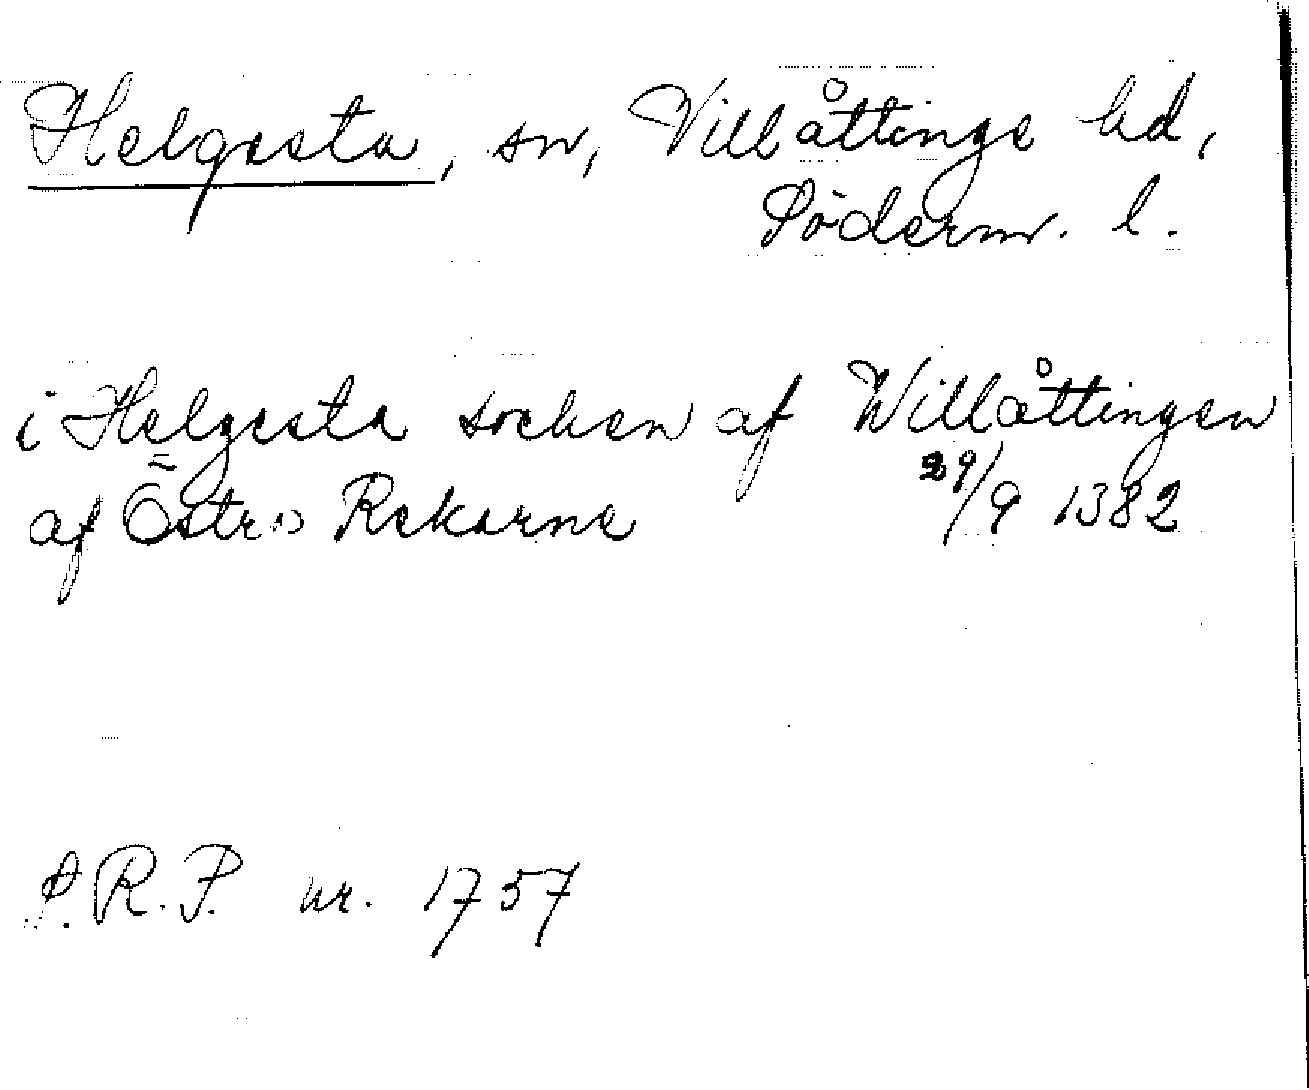 Helgesta, sn, Villåttinge hd,
Söderm. l.
i Helgesta socken af Willåttingen
af Östra Rekarne 29/9 1382
S.R.P. nr. 1757